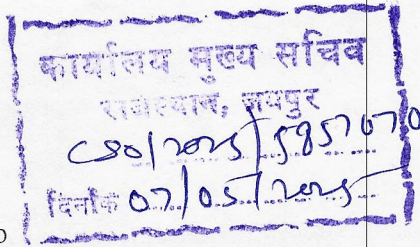 कार्यालय मुख्य सचिव
राजस्थान, जयपुर
CSO/2025/5857070
दिनांक 07/05/2025